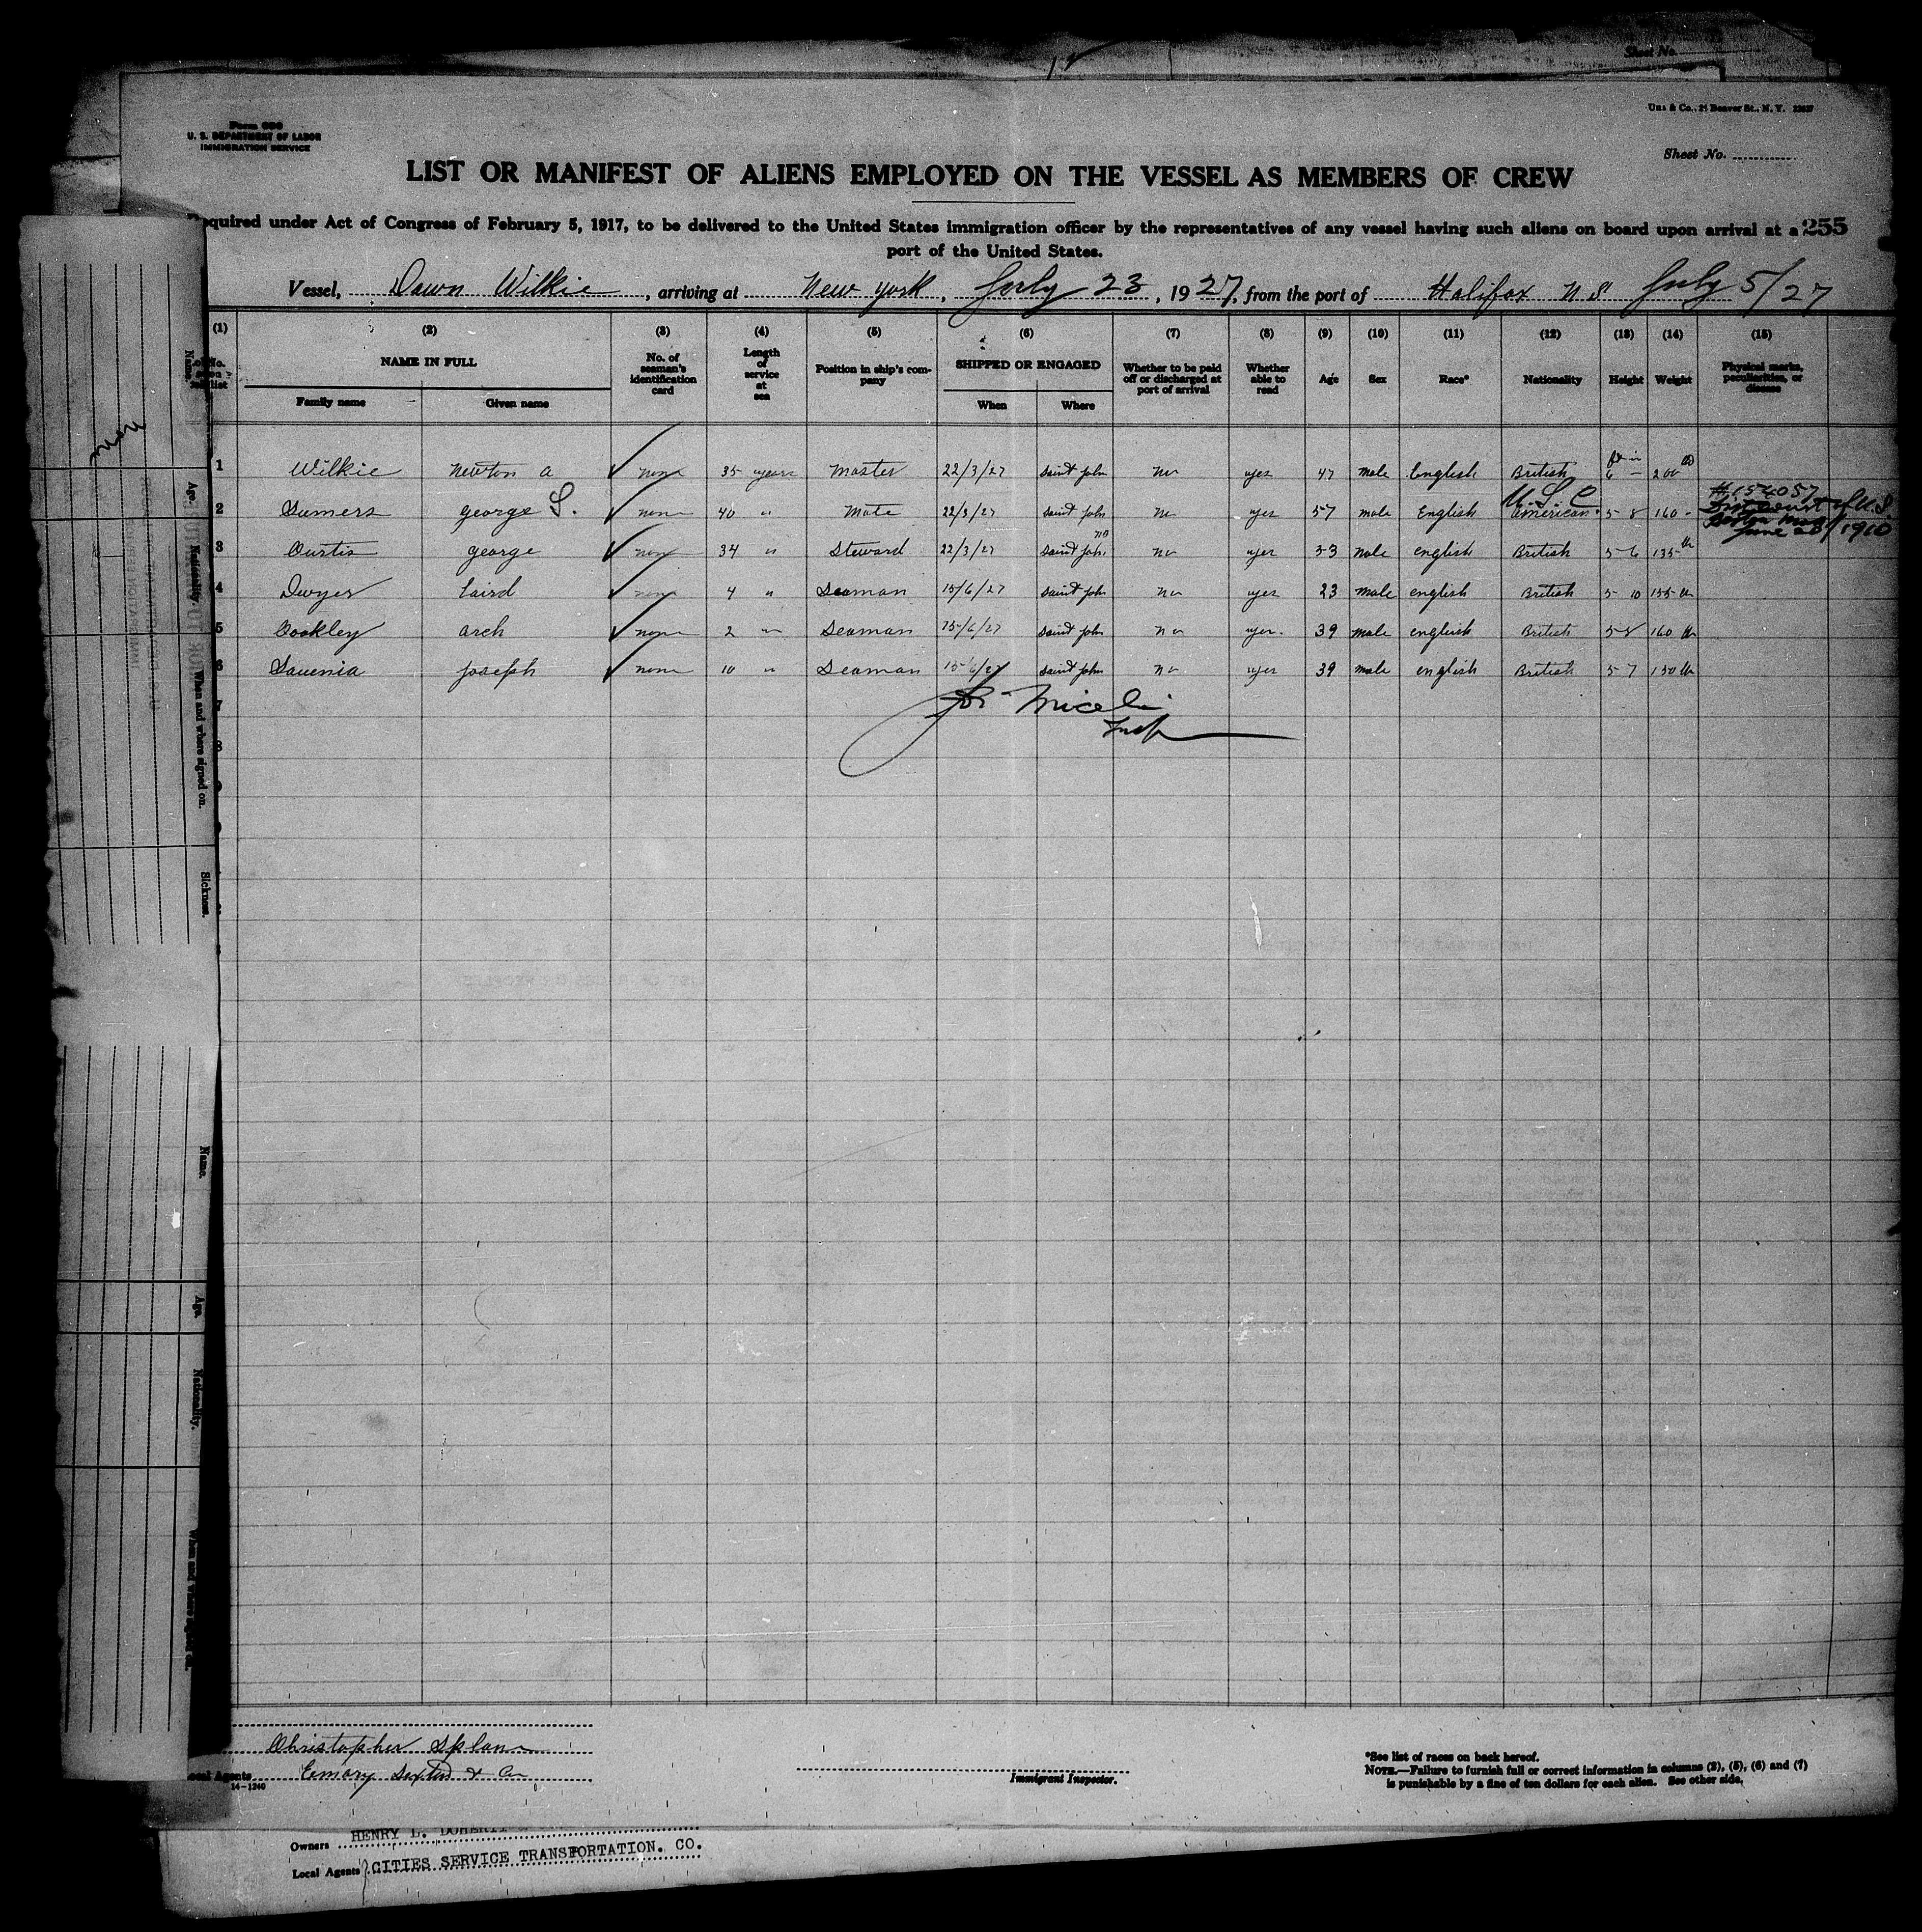 Sheet No.
Form 680
U. S. DEPARTMENT OF LABOR
IMMIGRATION SERVICE
& Co., 21 Beaver St., N. Y.
Sheet No.
LIST OR MANIFEST OF ALIENS EMPLOYED ON THE VESSEL AS MEMBERS OF CREW
Required under Act of Congress of February 5, 1917, to be delivered to the United States immigration officer by the representatives of any vessel having such aliens on board upon arrival at a 255
port of the United States.
Vessel, Dawn Wilkie, arriving at New York, July 23, 1927, from the port of Halifax N S July 5/27
(1) (2) (3) (4) (5) (6) (7) (8) (9) (10) (11) (12) (13) (14) (15)
NAME IN FULL No. of seaman's identification card Length of service at sea Position in ship's company SHIPPED OR ENGAGED Whether to be paid off or discharged at port of arrival Whether able to read Age Sex Race* Nationality Height Weight Physical marks, peculiarities, or disease
Family name Given name When Where
1 Wilkie Newton a none 35 years Master 22/3/27 Saint John no yes 47 male English British 6 - 200
2 Somers george S. none 40 " Mate 22/3/27 Saint John no yes 57 male English U.S.C. american 5 8 160 #154057
June 20/1910
3 Curtis george none 34 " Steward 22/3/27 Saint John no yes 53 male english British 5-6 135
4 Dwyer Laird none 4 " Seaman 15/6/27 Saint John no yes 23 male english British 5 10 155
5 Coakley arch none 2 " Seaman 15/6/27 Saint John no yes 39 male english British 5-8 160
6 joseph none 10 " Seaman 15/6/27 Saint John no yes 39 male english British 5 7 150
7 Miceli
Insp
8
Name.
Age.
Nationality.
When and where signed on.
Sickness.
Name.
Age.
Nationality.
When and where signed on.
Christopher Splane
Local Agents Emory
14-1240
Immigrant Inspector.
*See list of races on back hereof.
NOTE.—Failure to furnish full or correct information in columns (2), (5), (6) and (7)
is punishable by a fine of ten dollars for each alien. See other side.
Owners HENRY L. DOHERTY
Local Agents CITIES SERVICE TRANSPORTATION. CO.